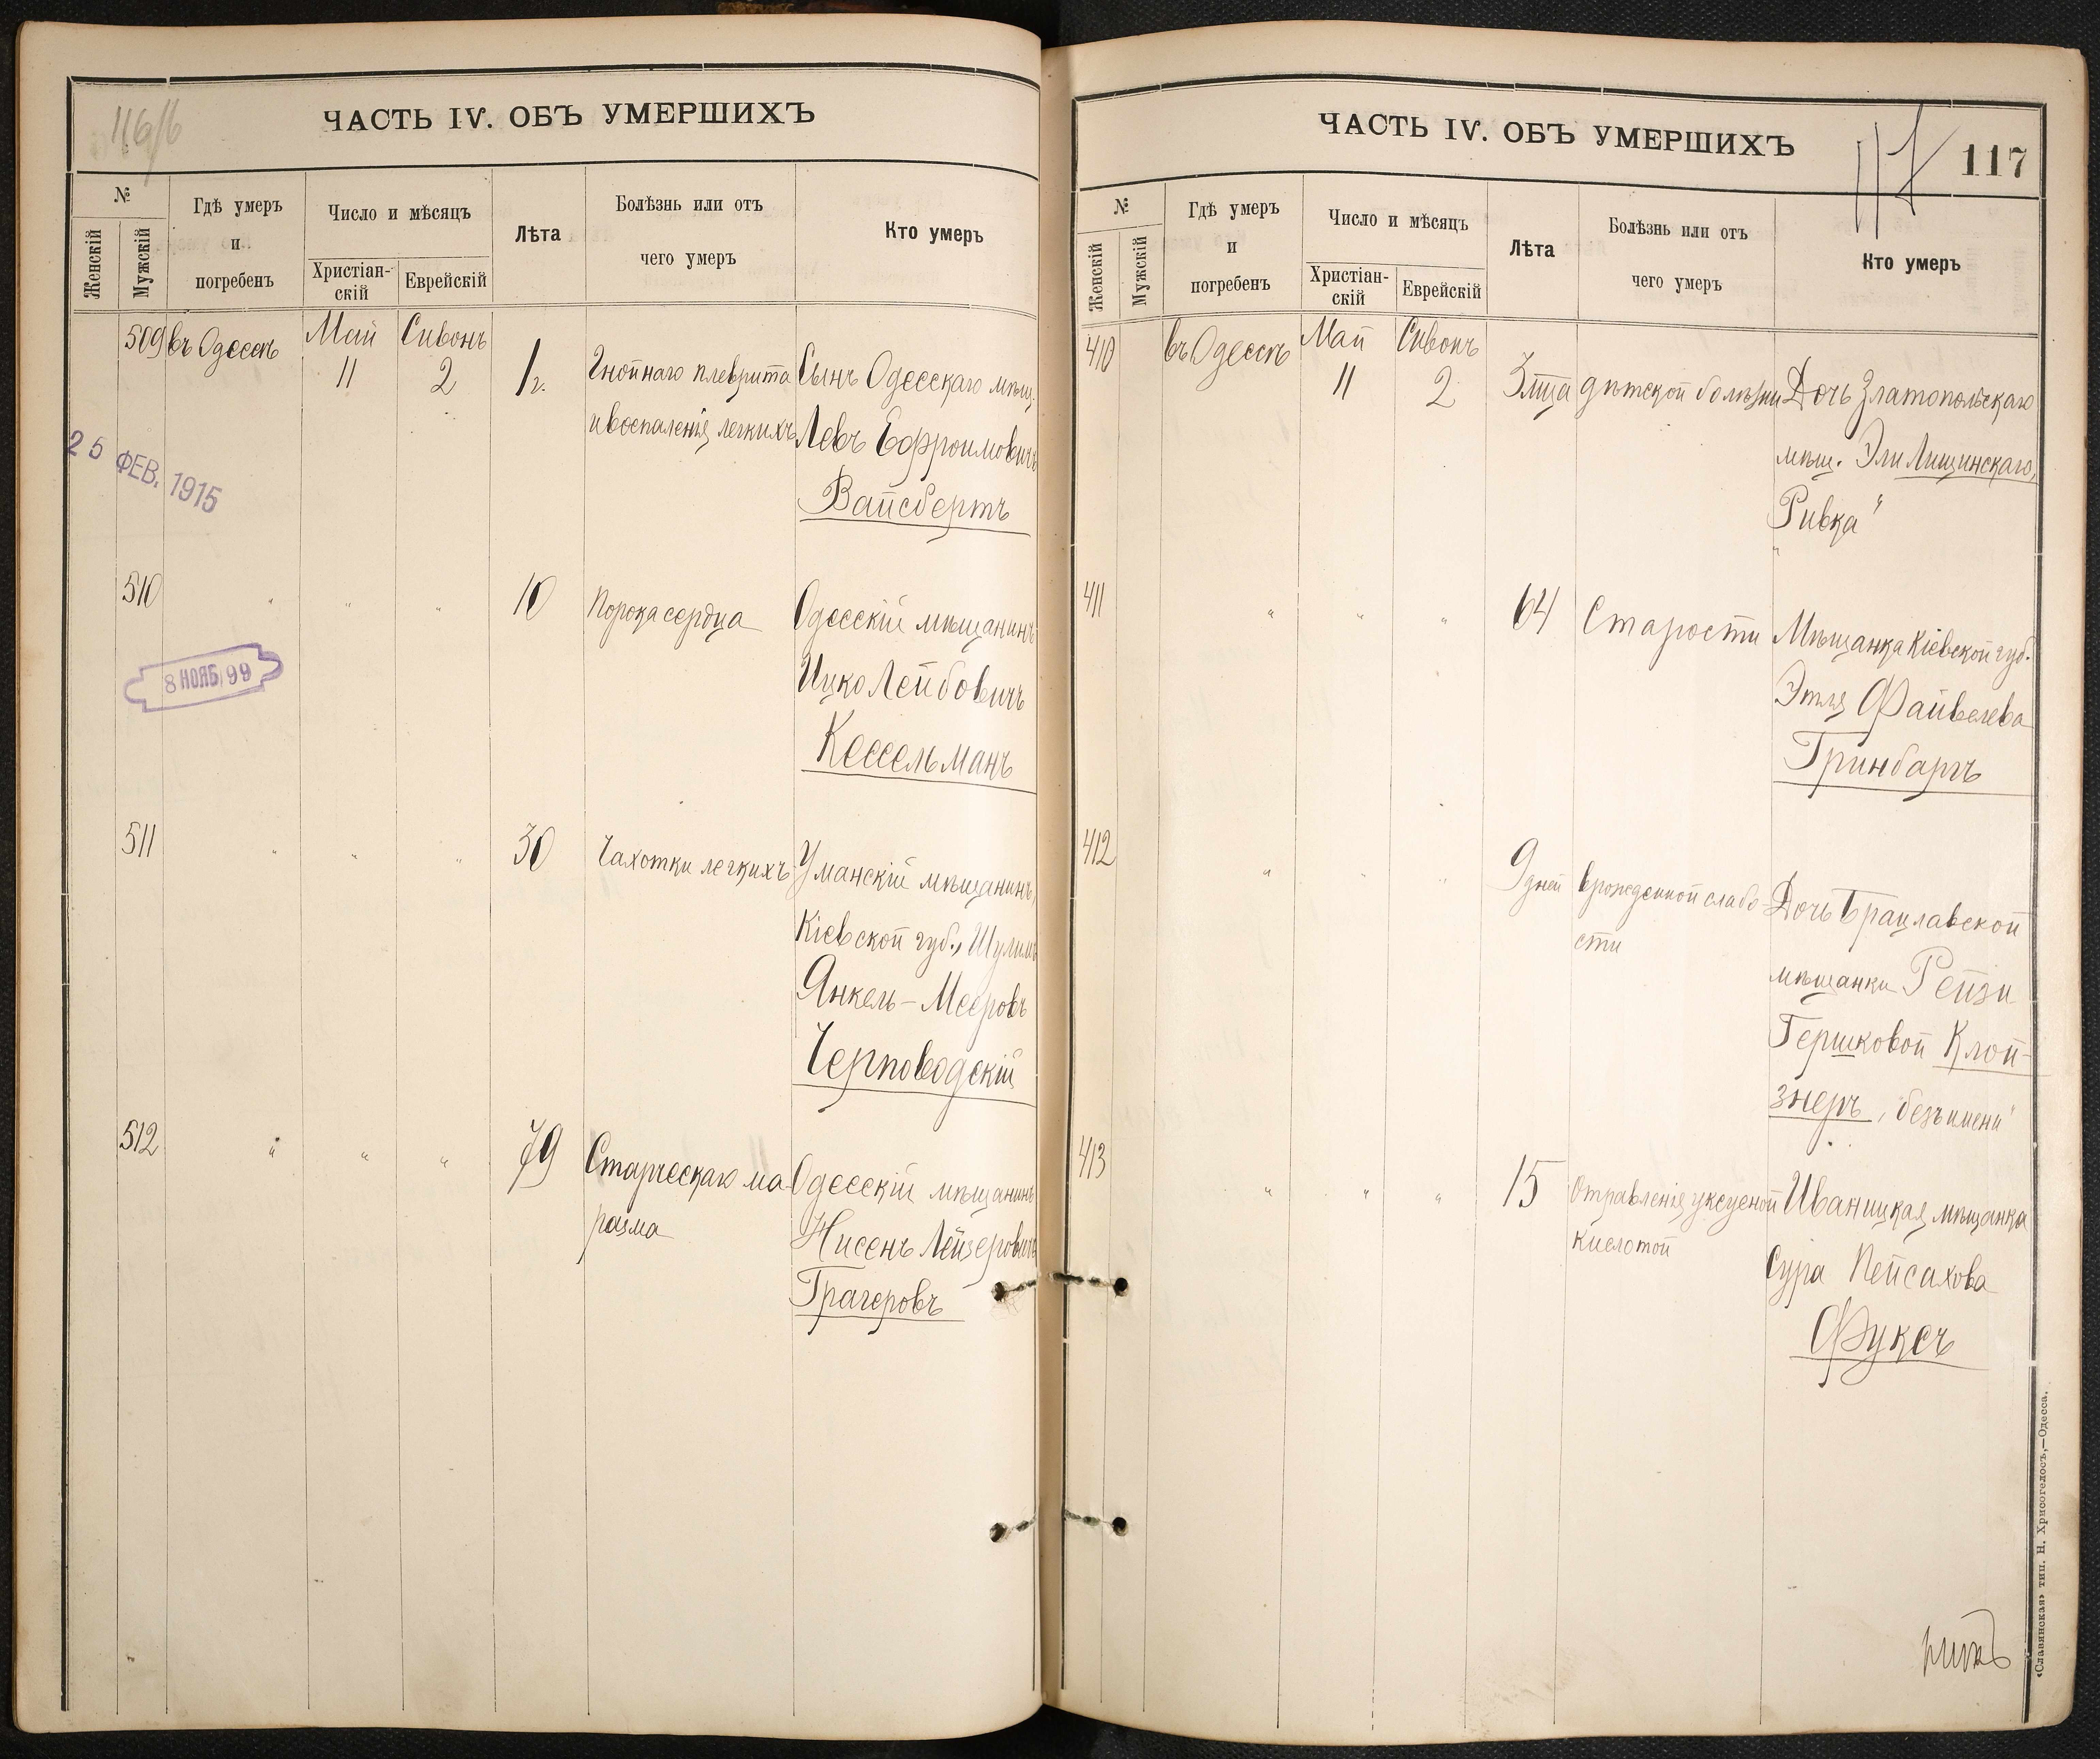 116/б
ЧАСТЬ IV. ОБЪ УМЕРШИХЪ
№
Женскій
Мужскій
Гдѣ умеръ
и
погребенъ
Число и мѣсяцъ
Христіан-
скій
Еврейскій
Лѣта
Болѣзнь или отъ
чего умеръ
Кто умеръ
509 въ Одессѣ Май Сивонъ
11 2 1 г. Гнойнаго плеврита Сынъ Одесскаго мѣщ.
и воспаленія легкихъ Левъ Ефроимовичъ
Вайсбертъ
25 ФЕВ. 1915
510 " " " 10 Порока сердца Одесскій мѣщанинъ
Ицко Лейбовичъ
Кессельманъ
8 НОЯБ. 99
511 " " " 30 Чахотки легкихъ Уманскій мѣщанинъ,
Кіевской губ., Шулимъ
Янкель-Мееровъ
Черповодскій
512 " " " 79 Старческаго ма- Одесскій мѣщанинъ
разма Нисенъ Лейзеровичъ
Трагеровъ
ЧАСТЬ IV. ОБЪ УМЕРШИХЪ
117
117
№
Женскій
Мужскій
Гдѣ умеръ
и
погребенъ
Число и мѣсяцъ
Христіан-
скій
Еврейскій
Лѣта
Болѣзнь или отъ
чего умеръ
Кто умеръ
410 въ Одессѣ Май Сивонъ
11 2 3 мца дѣтской болѣзни Дочь Златопольскаго
мѣщ. Эли Лищинскаго,
Ривка"
411 " " " 64 Старости Мѣщанка Кіевской губ.
Этля Файвелева
Гринбаргъ
412 " " " 9 дней врожденной слабо- Дочь Брацлавской
сти
мѣщанки Рейзи
Гершковой Клой-
знеръ, "безъ имени"
413 " " " 15 Отравленія уксусной Иваницкая мѣщанка
кислотой Сура Пейсахова
Фуксъ
«Славянская» тип. Н. Хрисогелосъ,—Одесса.